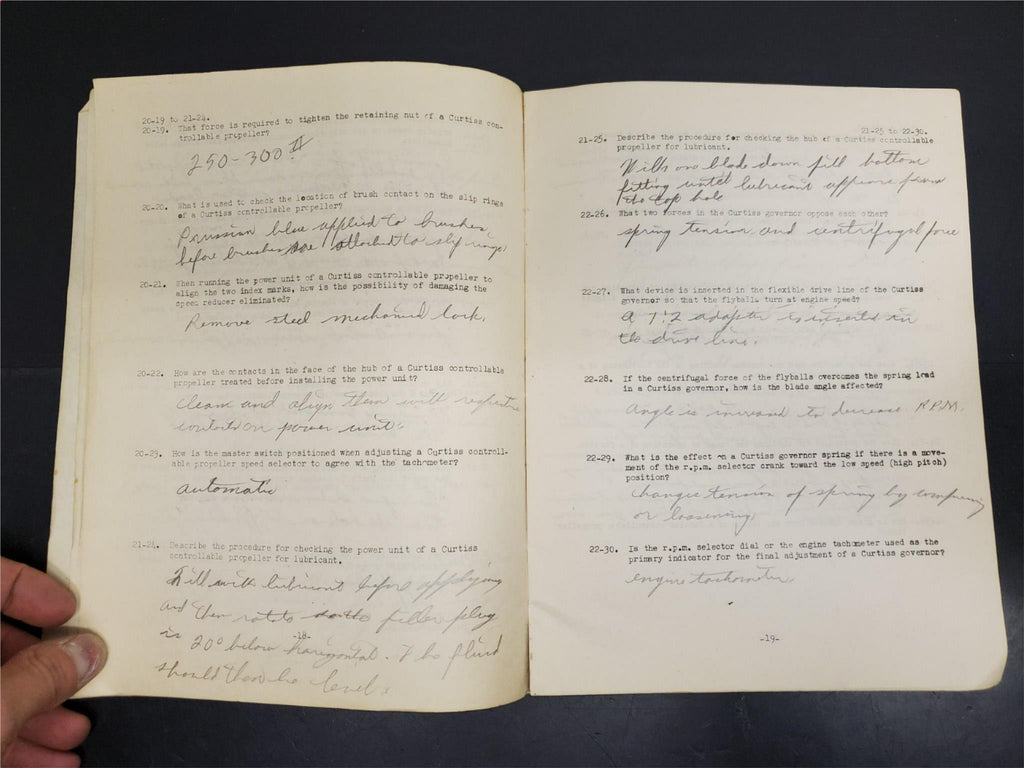 20-19 to 21-24.
20-19. What force is required to tighten the retaining nut of a Curtiss con-
trollable propeller?
250-300 #
20-20. What is used to check the location of brush contact on the slip rings
of a Curtiss controllable propeller?
Prussian blue applied to brushes
before brushes are attached to slip rings
20-21. When running the power unit of a Curtiss controllable propeller to
align the two index marks, how is the possibility of damaging the
speed reducer eliminated?
Remove steel mechanical lock.
20-22. How are the contacts in the face of the hub of a Curtiss controllable
propeller treated before installing the power unit?
Clean and align them with respective
contacts on power unit.
20-23. How is the master switch positioned when adjusting a Curtiss controll-
able propeller speed selector to agree with the tachometer?
automatic
21-24. Describe the procedure for checking the power unit of a Curtiss
controllable propeller for lubricant.
Fill with lubricant before applying
and then rotate filler plug
is 20° below horizontal. The fluid
should then be level.
-18-
21-25 to 22-30.
21-25. Describe the procedure for checking the hub of a Curtiss controllable
propeller for lubricant.
With one blade down fill bottom
fitting until lubricant appears from
top hole
22-26. What two forces in the Curtiss governor oppose each other?
spring tension and centrifugal force
22-27. What device is inserted in the flexible drive line of the Curtiss
governor so that the flyballs turn at engine speed?
a 1:2 adapter is inserted in
the drive line.
22-28. If the centrifugal force of the flyballs overcomes the spring load
in a Curtiss governor, how is the blade angle affected?
Angle is increased to decrease R.P.M.
22-29. What is the effect on a Curtiss governor spring if there is a move-
ment of the r.p.m. selector crank toward the low speed (high pitch)
position?
changes tension of spring by compressing
or loosening
22-30. Is the r.p.m. selector dial or the engine tachometer used as the
primary indicator for the final adjustment of a Curtiss governor?
engine tachometer
-19-